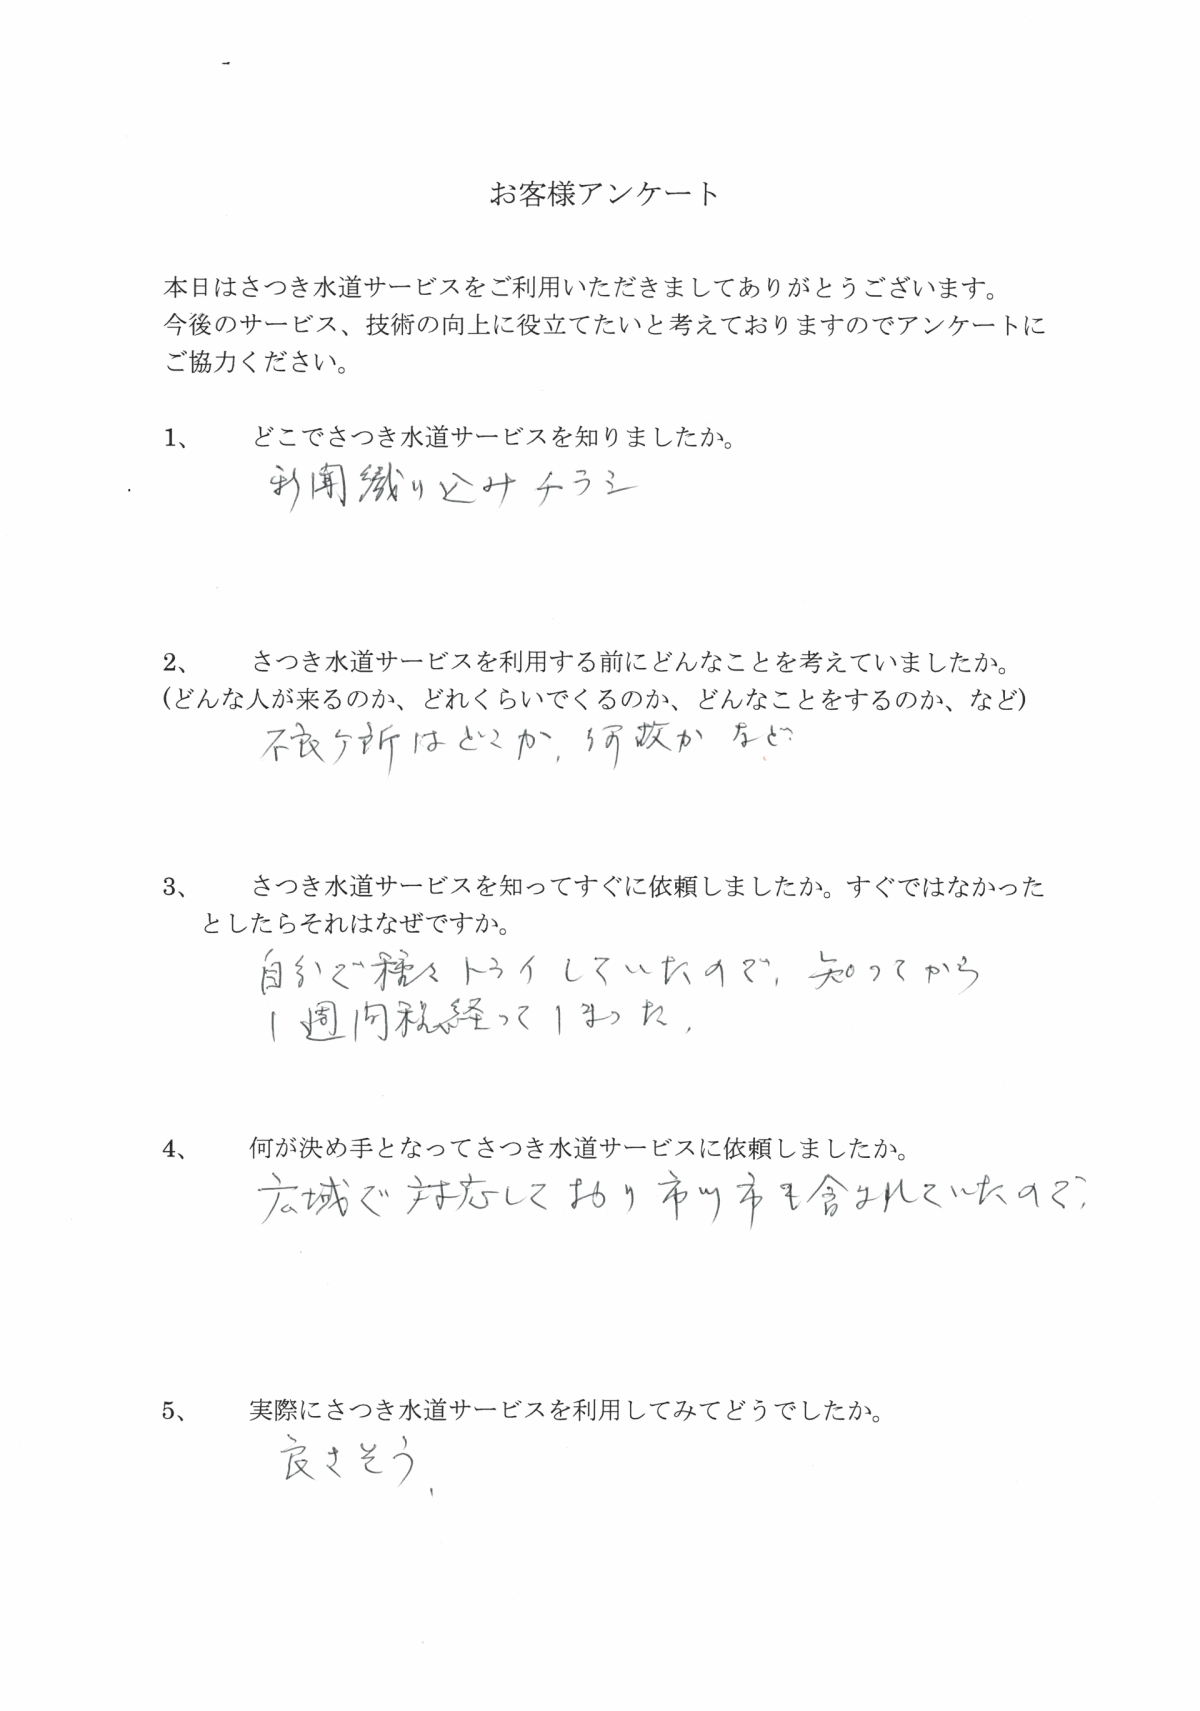 お客様アンケート
本日はさつき水道サービスをご利用いただきましてありがとうございます。
今後のサービス、技術の向上に役立てたいと考えておりますのでアンケートに
ご協力ください。
1、 どこでさつき水道サービスを知りましたか。
新聞織り込みチラシ
2、 さつき水道サービスを利用する前にどんなことを考えていましたか。
(どんな人が来るのか、どれくらいでくるのか、どんなことをするのか、など)
不良ケ所はどこか、何故かなど
3、 さつき水道サービスを知ってすぐに依頼しましたか。すぐではなかった
としたらそれはなぜですか。
自分で種々トライしていたので、知ってから
1週間程経ってしまった。
4、 何が決め手となってさつき水道サービスに依頼しましたか。
広域で対応しており市川市も含まれていたので
5、 実際にさつき水道サービスを利用してみてどうでしたか。
良さそう。